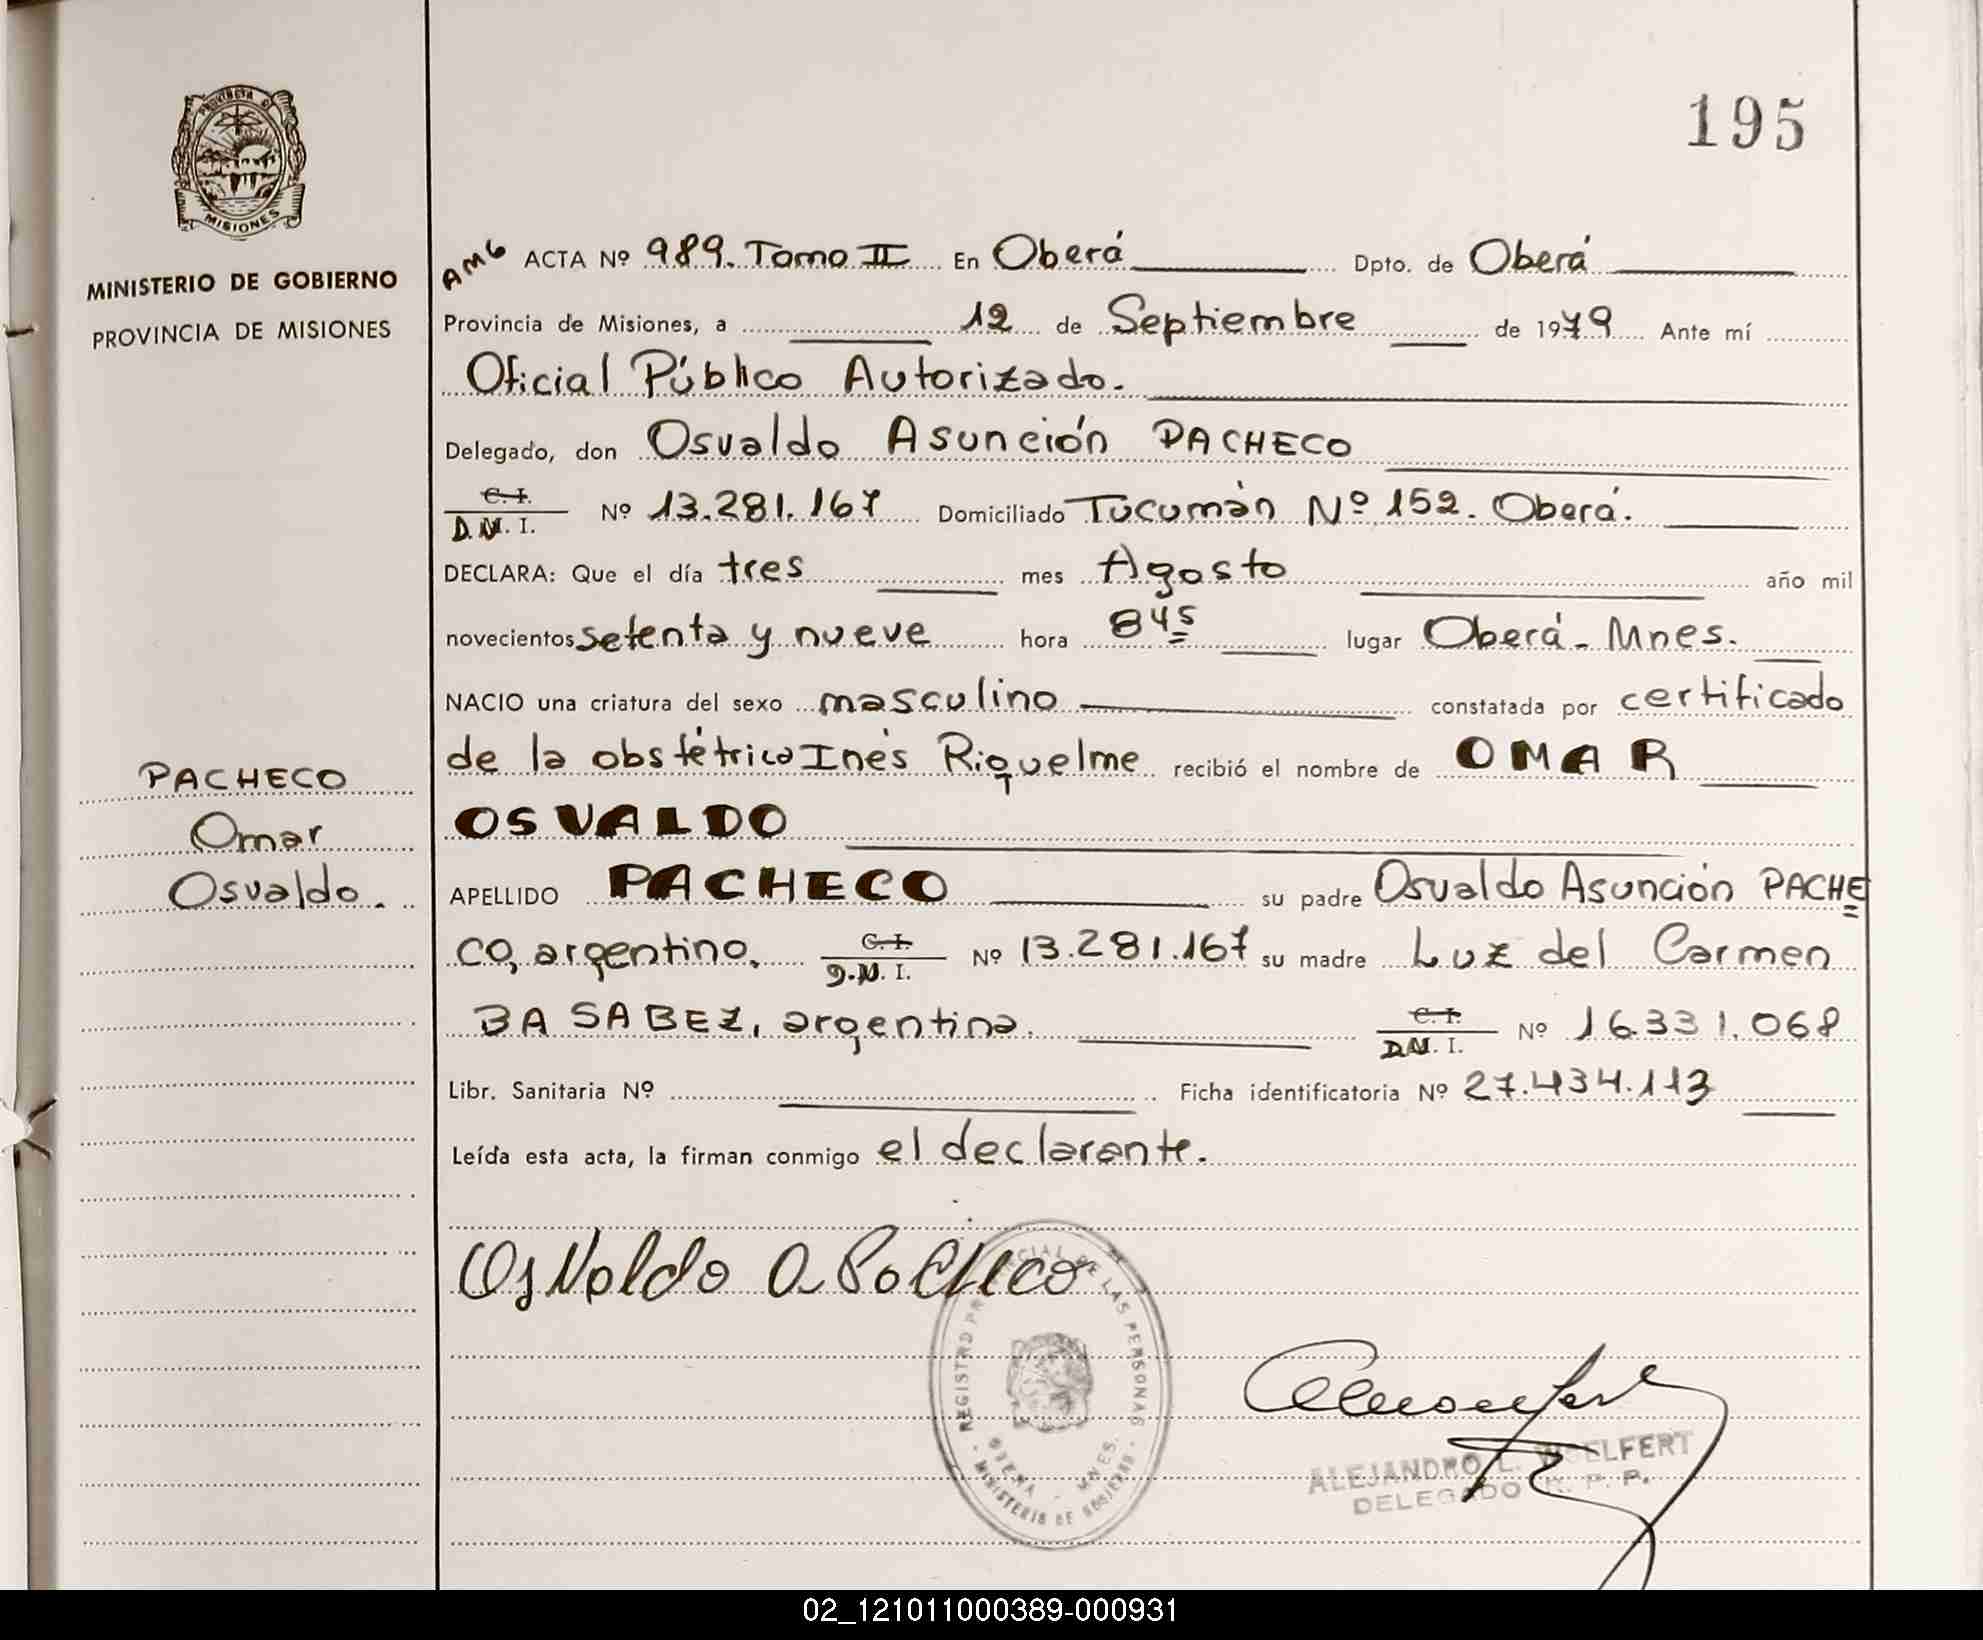 195
PROVINCIA DE
MISIONES
MINISTERIO DE GOBIERNO
PROVINCIA DE MISIONES
PACHECO
Omar
Osvaldo.
AMG ACTA Nº 989. Tomo II En Oberá Dpto. de Oberá
Provincia de Misiones, a 12 de Septiembre de 1979 Ante mí
Oficial Público Autorizado.
Delegado, don Osvaldo Asunción PACHECO
C. I.
D.N. I. Nº 13.281.167 Domiciliado Tucumán Nº 152. Oberá.
DECLARA: Que el día tres mes Agosto año mil
novecientos setenta y nueve hora 8 45 lugar Oberá - Mnes.
NACIO una criatura del sexo masculino constatada por certificado
de la obstétrica Inés Riquelme recibió el nombre de OMAR
OSVALDO
APELLIDO PACHECO su padre Osvaldo Asunción PACHE
CO, argentino, C. I. D.N. I. Nº 13.281.167 su madre Luz del Carmen
BASABEZ, argentina. C. I. D.N. I. Nº 16.331.068
Libr. Sanitaria Nº Ficha identificatoria Nº 27.434.113
Leída esta acta, la firman conmigo el declarante.
Osvaldo A Pacheco
REGISTRO PROVINCIAL DE LAS PERSONAS
OBERA - MNES.
MINISTERIO DE GOBIERNO
ALEJANDRO L. WOELFERT
DELEGADO R. P. P.
02_121011000389-000931